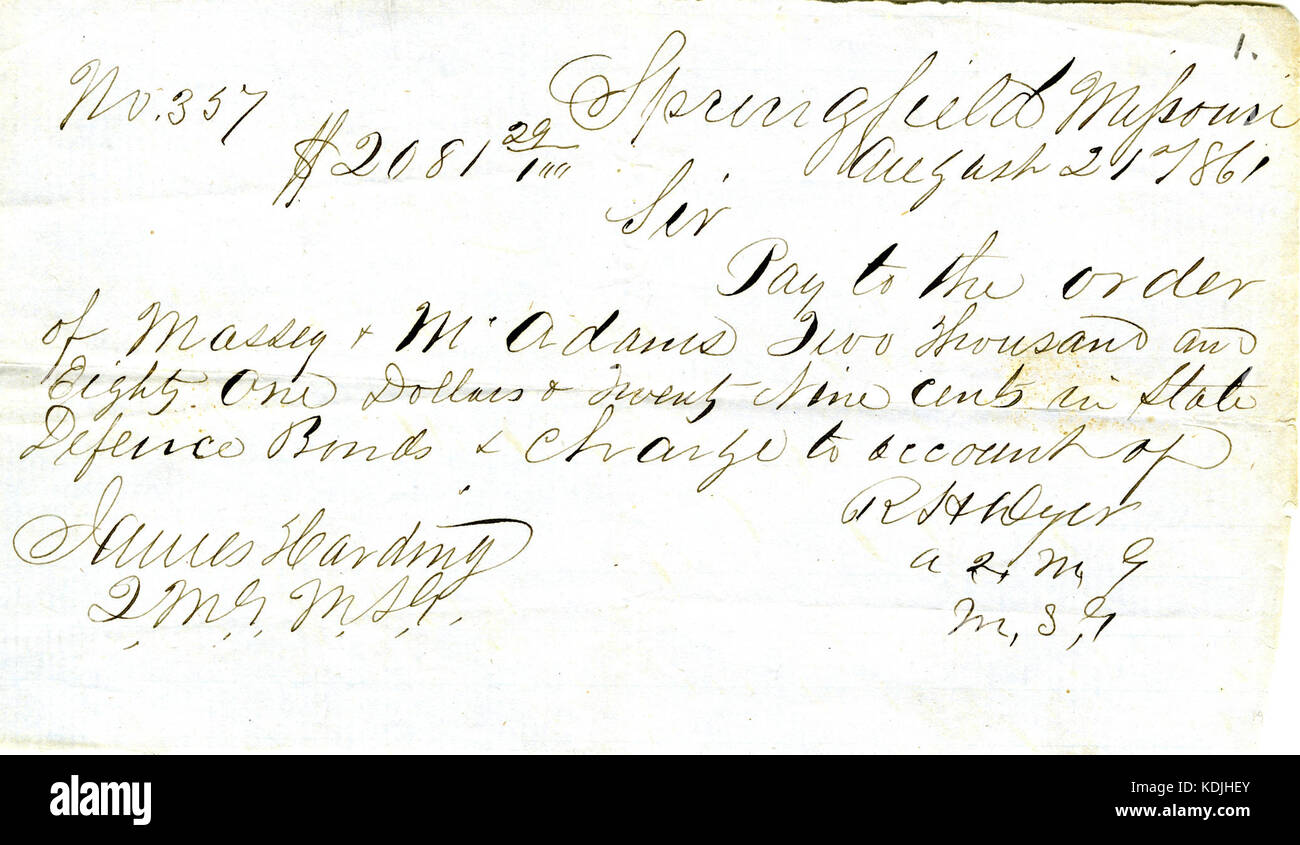 1.
No. 357 Springfield Missouri
$2081 29/100 August 21st 1861
Sir
Pay to the order
of Massey & McAdams Two Thousand and
Eighty One Dollars & Twenty Nine cents in State
Defence Bonds & Charge to account of
R H Dyer
A Q. M. G
M, S, G
James Harding
Q. M. G. M. S. G.
a alamy stock photo
KDJHEY
www.alamy.com